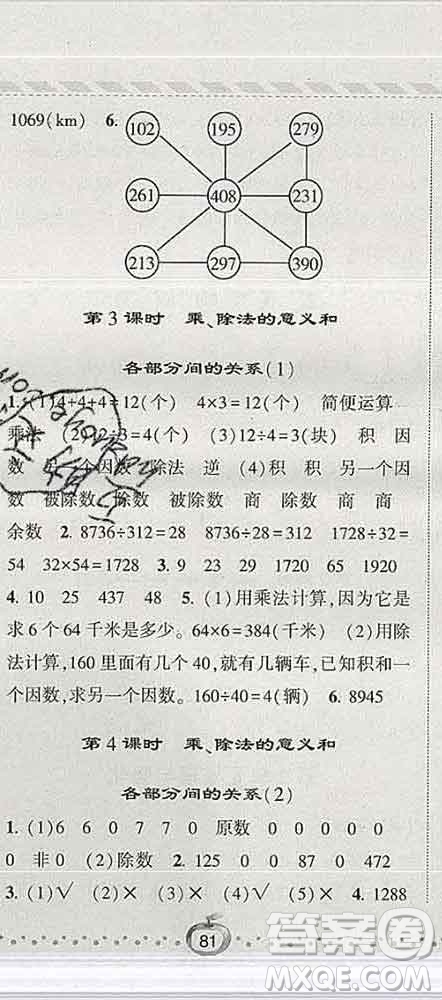 1069(km) 6.
102 195 279
261 408 231
213 297 390
第3课时 乘、除法的意义和
各部分间的关系(1)
1. (1)4+4+4=12(个) 4×3=12(个) 简便运算
乘 (2)12÷3=4(个) (3)12÷4=3(块) 积 因
数 个因数 除法 逆 (4)积 积 另一个因
数 被除数 除数 被除数 商 除数 商 商
余数 2. 8736÷312=28 8736÷28=312 1728÷32=
54 32×54=1728 3. 9 23 29 1720 65 1920
4. 10 25 437 48 5. (1)用乘法计算,因为它是
求6个64千米是多少。64×6=384(千米) (2)用除
法计算,160里面有几个40,就有几辆车,已知积和一
个因数,求另一个因数。160÷40=4(辆) 6. 8945
第4课时 乘、除法的意义和
各部分间的关系(2)
1. (1)6 6 0 7 7 0 原数 0 0 0 0 0
0 非0 (2)除数 2. 125 0 0 87 0 472
3. (1)√ (2)× (3)× (4)√ (5)× 4. 1288
81
答案圈
MXQE.COM